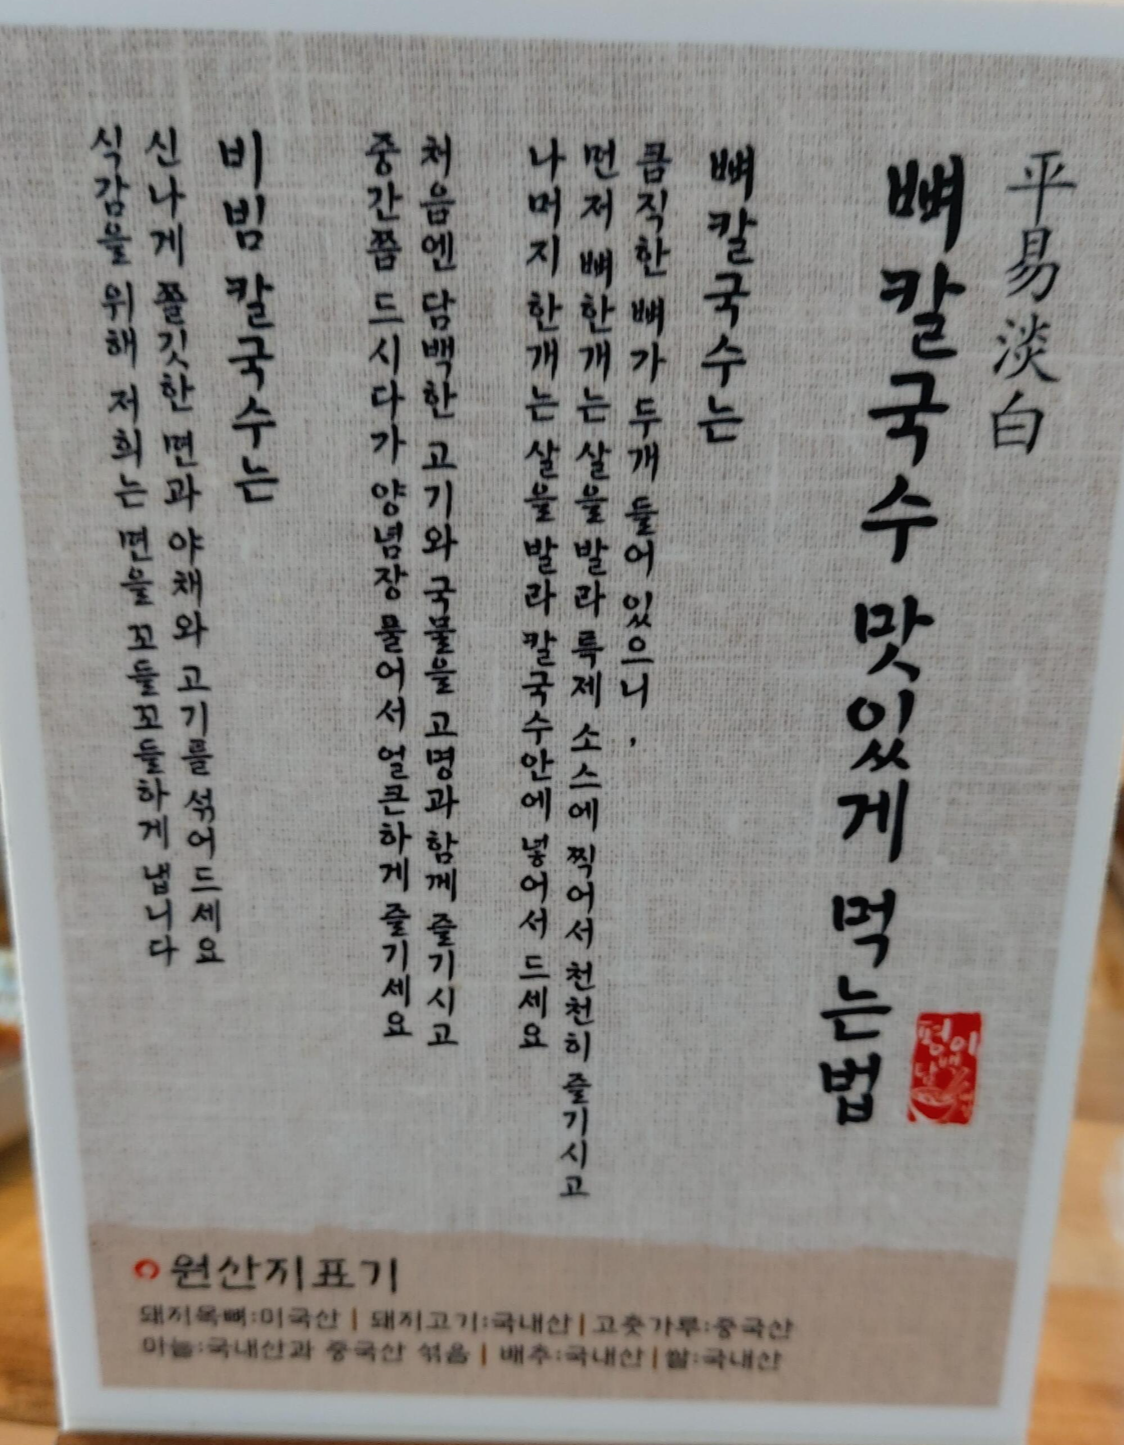 平易淡白
뼈칼국수 맛있게 먹는법
뼈칼국수는
큼직한 뼈가 두개 들어 있으니,
먼저 뼈한개는 살을 발라 특제 소스에 찍어서 천천히 즐기시고
나머지 한개는 살을 발라 칼국수안에 넣어서 드세요
처음엔 담백한 고기와 국물을 고명과 함께 즐기시고
중간쯤 드시다가 양념장 풀어서 얼큰하게 즐기세요
비빔 칼국수는
신나게 쫄깃한 면과 야채와 고기를 섞어드세요
식감을 위해 저희는 면을 꼬들꼬들하게 냅니다
원산지표기
돼지목뼈:미국산 | 돼지고기:국내산 | 고춧가루:중국산
마늘:국내산과 중국산 섞음 | 배추:국내산 | 쌀:국내산